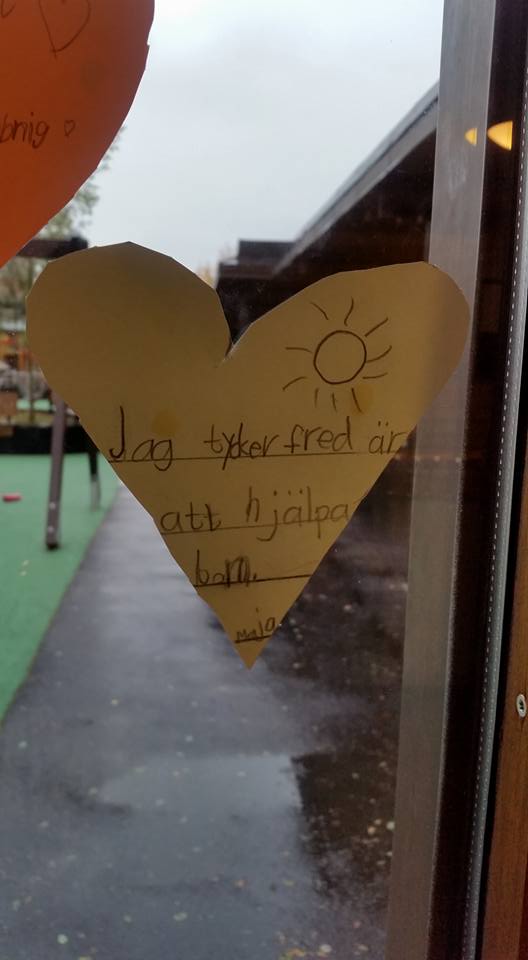 Jag tycker fred är
att hjälpa
barn.
maja